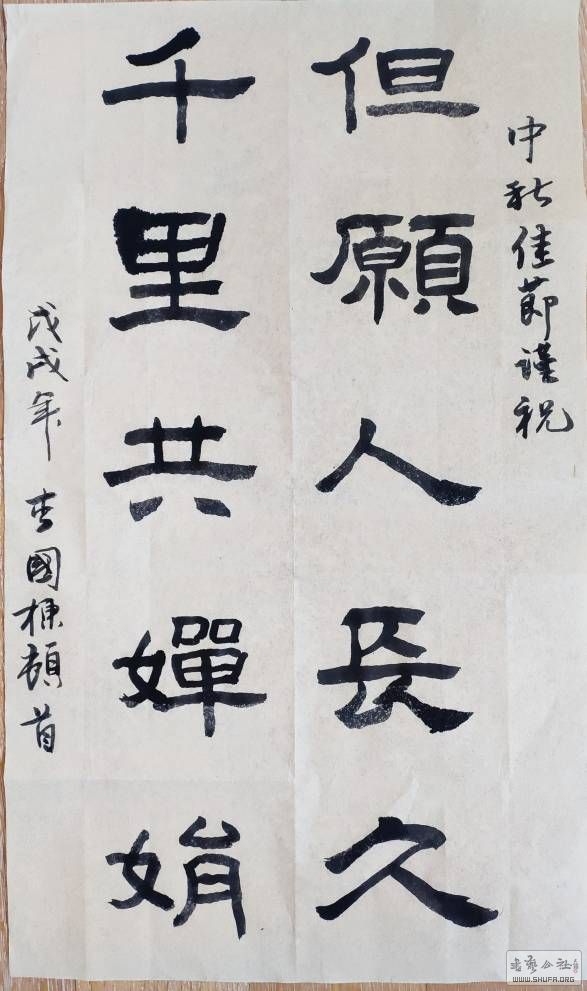 中秋佳節謹祝
但願人長久
千里共嬋娟
戊戌年 李國棟頓首
书艺公社
WWW.SHUFA.ORG